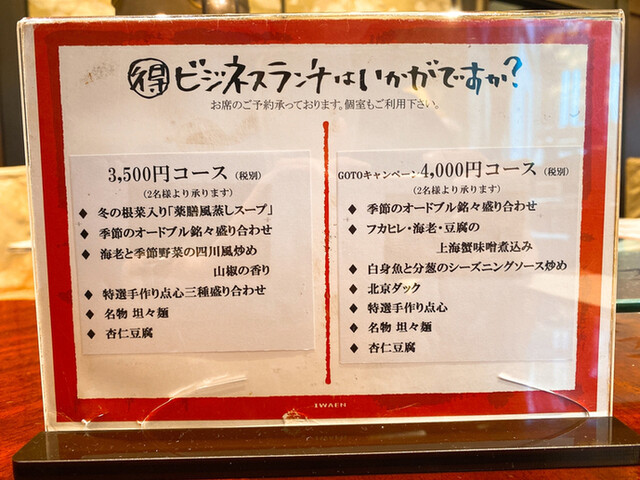 得 ビジネスランチはいかがですか?
お席のご予約承っております。個室もご利用下さい。
3,500円コース (税別)
(2名様より承ります)
◆ 冬の根菜入り「薬膳風蒸しスープ」
◆ 季節のオードブル銘々盛り合わせ
◆ 海老と季節野菜の四川風炒め
山椒の香り
◆ 特選手作り点心三種盛り合わせ
◆ 名物 坦々麺
◆ 杏仁豆腐
GOTOキャンペーン4,000円コース (税別)
(2名様より承ります)
◆ 季節のオードブル銘々盛り合わせ
◆ フカヒレ・海老・豆腐の
上海蟹味噌煮込み
◆ 白身魚と分葱のシーズニングソース炒め
◆ 北京ダック
◆ 特選手作り点心
◆ 名物 坦々麺
◆ 杏仁豆腐
IWAEN